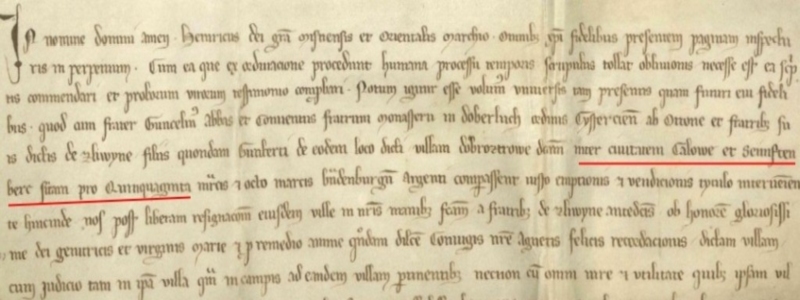 In nomine domini amen. Henricus dei gra misnensis et Orientalis marchio. Omnib; xpi fidelibus presentem paginam inspectu
ris in perpetuum. Cum ea que ex ordinatione procedunt humana processu temporis scrupulus tollat obliuionis necesse est ea scp
tis commendari et proborum virorum testimonio comprobari. Notum igitur esse volum vniuersis tam presentibus quam futuris xpi fideli
bus. quod cum frater Guncelin Abbas et Conuentus fratrum monasterii in doberluch ordinis Cysterciens ab Ottone et fratrib; su
is dictis de zliwyne filiis quondam Gunteri de eodem loco dicti villam dobroztrowe dcam inter ciuitatem Calowe et Semften
berc sitam pro Quinquaginta mrcis et octo marcis brandenburgn Argenti comparassent iusto emptionis et vendicionis tytulo interuenien
te hincinde nos post liberam resignacoem eiusdem ville in nris manib; fcam a fratrib; de zliwyne antedcis ob honore gloriosissi
me dei genitricis et virginis marie et p remedio anime quondam dilce Coniugis nre Agnetis felicis recordacionis dictam villam
cum iudicio tam in ipa villa qm in campis ad eandem villam ptinentib; necnon cu omni iure et vtilitate quib; ipsam vil